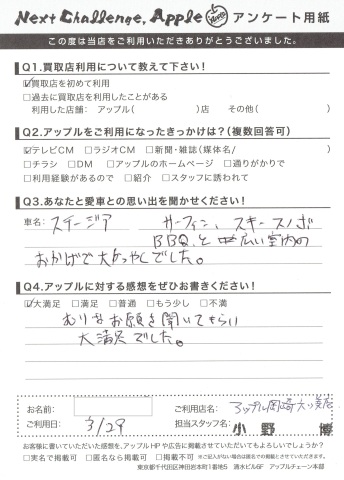 Next Challenge, Apple アンケート用紙
この度は当店をご利用いただきありがとうございました。
Q1.買取店利用について教えて下さい!
☑買取店を初めて利用
□過去に買取店を利用したことがある
利用した店舗: アップル( )店 その他( )
Q2.アップルをご利用になったきっかけは?(複数回答可)
☑テレビCM □ラジオCM □新聞・雑誌(媒体名/ )
□チラシ □DM □アップルのホームページ □通りがかりで
□利用経験があるので □紹介 □スタッフに誘われて
Q3.あなたと愛車との思い出を聞かせください!
車名: ステージア サーフィン、スキー スノボ
BBQ、と 広い室内の
おかげで大かつやくでした。
Q4.アップルに対する感想をぜひお書きください!
☑大満足 □満足 □普通 □もう少し □不満
むりなお願を聞いてもらい
大満足でした。
お名前 ご利用店名: アップル岡崎大樹寺店
ご利用日 3/29 担当スタッフ名: 小野 博
お客様に書いていただいた感想を、アップルHPや広告に掲載させていただいてもよろしいでしょうか?
□実名で掲載可 □匿名なら掲載可 □掲載不可 ※ご記入がない場合は匿名での掲載とさせていただきます。
東京都千代田区神田岩本町1番地5 清水ビル6F アップルチェーン本部